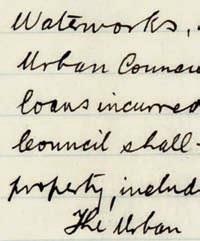 Waterworks,
Urban Counci
loans incurred
Council shall
property, includ
The Urban